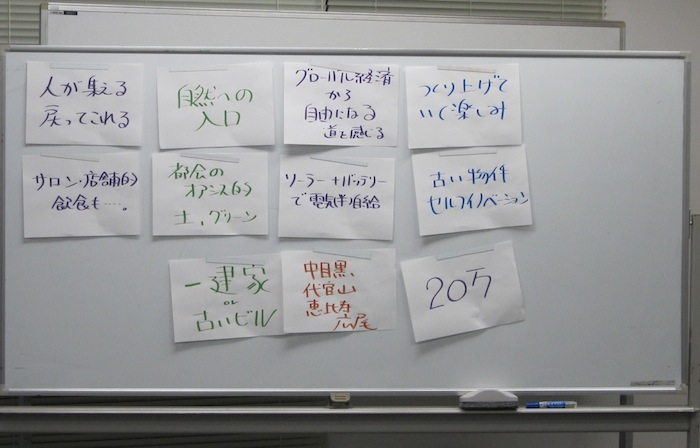 人が集える
戻ってこれる
自然への
入口
グローバル経済
から
自由になる
道を感じる
つくり上げて
いく楽しみ
サロン・店舗的
飲食も……。
都会の
オアシス的
土、グリーン
ソーラー+バッテリー
で電気半自給
古い物件
セルフイノベーション
一建家
or
古いビル
中目黒、
代官山
恵比寿
広尾
20万